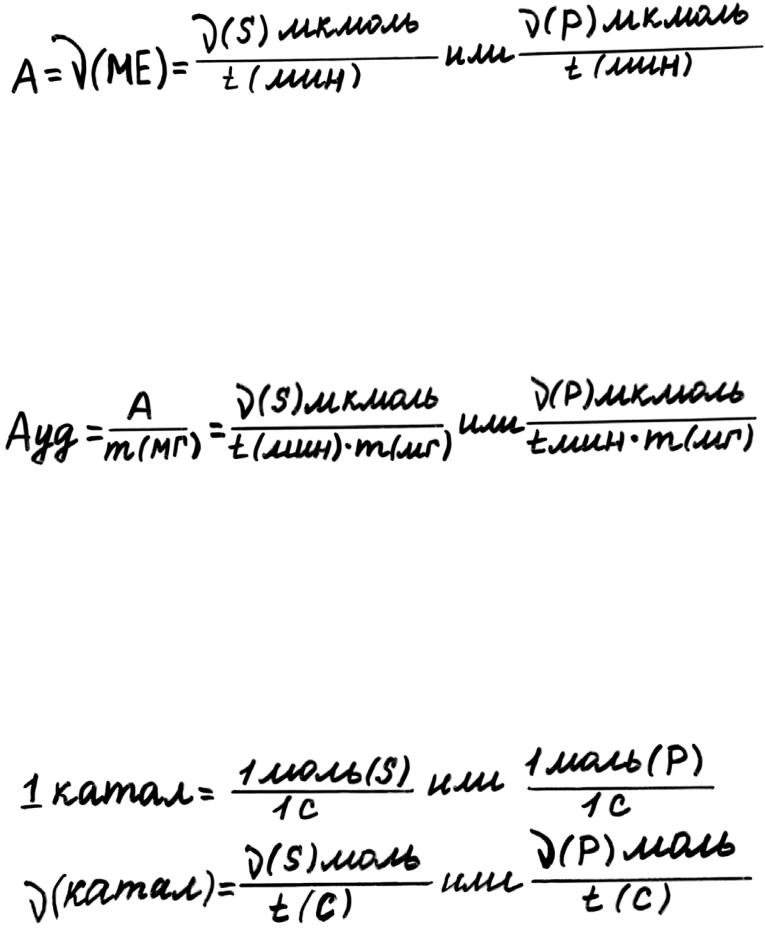 A = ν(МЕ) = ν(S) мкмоль / t (мин) или ν(P) мкмоль / t (мин)
Aуд = A / m(мг) = ν(S) мкмоль / t(мин)·m(мг) или ν(P) мкмоль / t мин·m(мг)
1 катал = 1 моль(S) / 1 с или 1 моль(P) / 1 с
ν(катал) = ν(S) моль / t (с) или ν(P) моль / t (с)